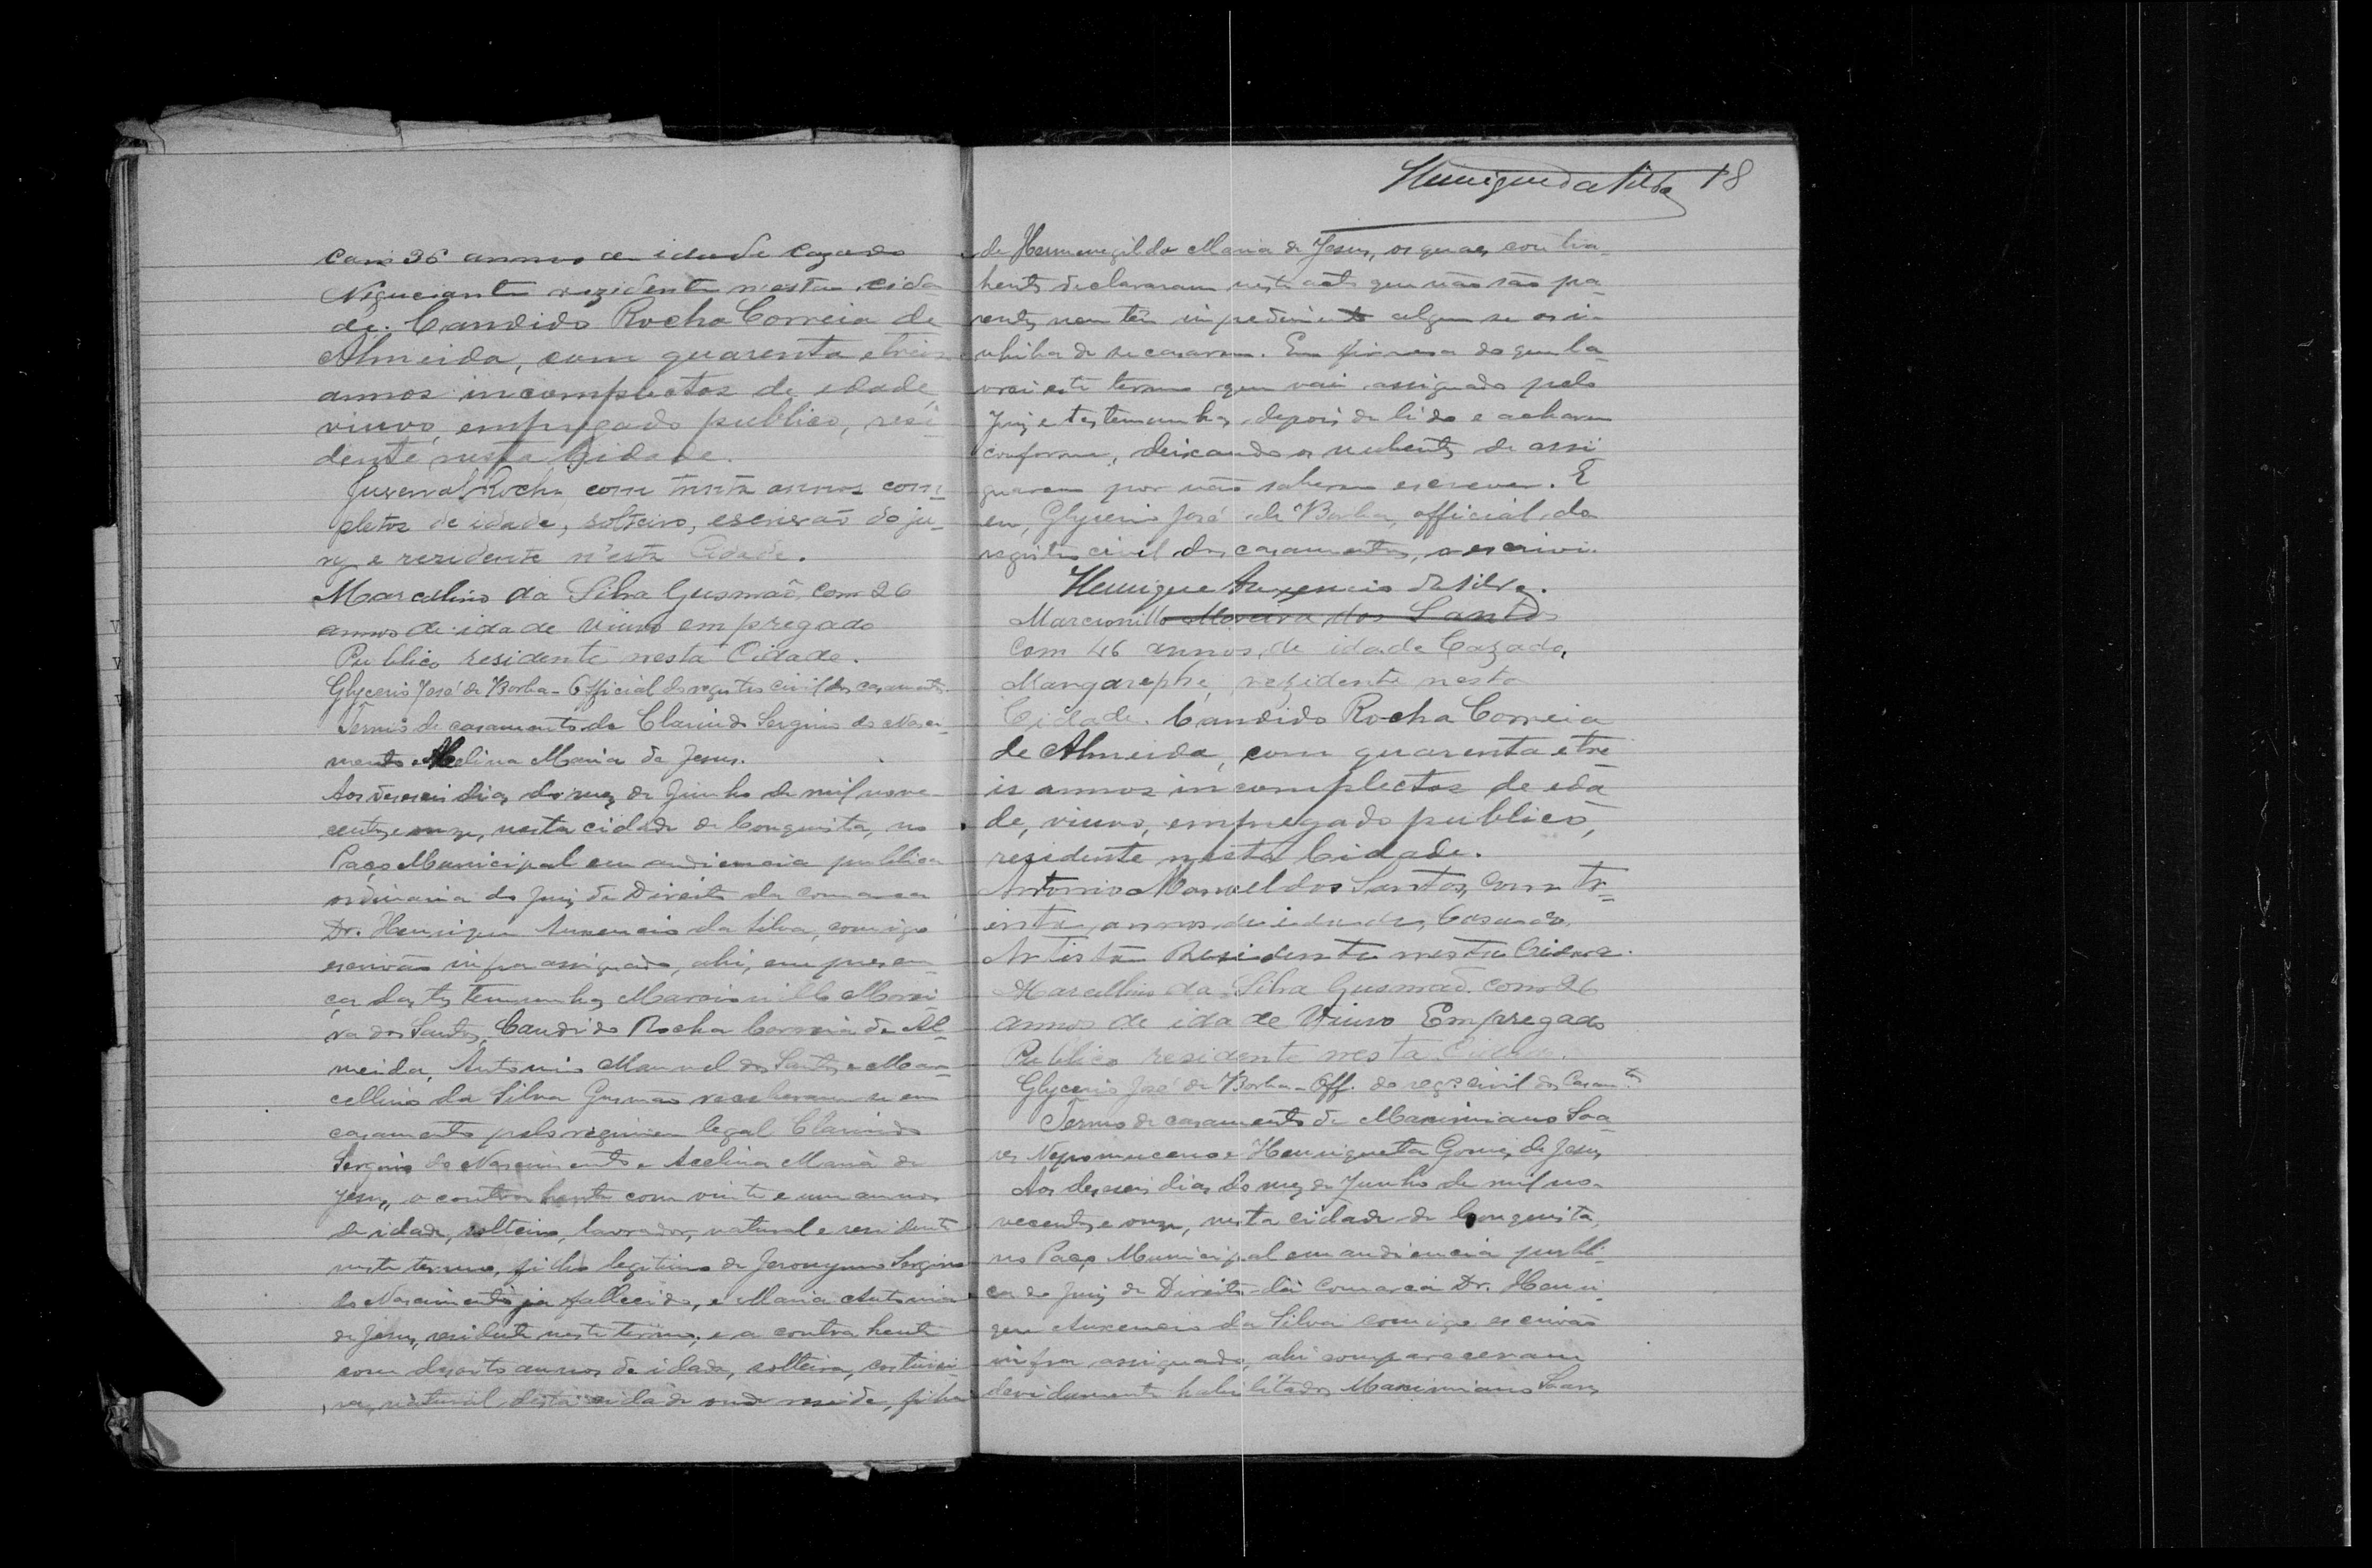 com 36 annos de idade cazado
Niguciante rezidente nesta cida
de. Candido Rocha Correia de
Almeida, com quarenta e treis
annos incomplectos de edade,
viuvo, empregado publico, resi-
dente nesta Cidade.
Juvenal Rocha com trinta annos com-
pletos de idade, solteiro, escrivão do ju-
ry e rezidente n'esta Cidade.
Marcellino da Silva Gusmão, com 26
annos de idade viuvo empregado
Publico residente nesta Cidade.
Glycerio José de Borba - Official do registro civil dos casamentos.
Termo de casamento de Clarindo Sergino do Nasci-
mento e Acelina Maria de Jesus.
Aos deseseis dias do mez de Junho de mil nove
centos e onze, nesta cidade de Conquista, no
Paço Municipal em audiencia publica
ordinaria do Juiz de Direito da comarca
Dr. Henrique Auxencio da Silva, comigo
escrivão infra assignado, ahi, em presen-
ça das testemunhas Marcionillo Morei-
ra dos Santos, Candido Rocha Correia de Al-
meida, Antonio Manuel dos Santos e Mar-
cellino da Silva Gusmão receberam-se em
casamento pelo regimen legal Clarindo
Sergino do Nascimento e Acelina Maria de
Jesus, o contrahente com vinte e um annos
de idade, solteiro, lavrador, natural e residente
neste termo, filho legitimo de Jeronymo Sergino
do Nascimento já fallecido, e Maria Antonia
de Jesus, residente neste termo; e a contrahente
com desoito annos de idade, solteira, costurei-
ra, natural desta cidade onde reside, filha
Henrique da Silva 18
de Hermenegilda Maria de Jesus, os quaes contra-
hentes declararam neste acto que não são pa-
rentes nem têm impedimento algum se os i-
nhiba de se casarem. Em firmesa do que la-
vrei este termo que vai assignado pelo
Juiz e testemunhas, depois de lido e acharem
conforme, deixando os nubentes de assi
gnarem por não saberem escrever. E
eu, Glycerio José de Borba, official do
registro civil dos casamentos, o escrivi.
Henrique Auxencio da Silva.
Marcionillo Moreira dos Santos
Com 46 annos, de idade Cazado,
rezidente nesta
Cidade. Candido Rocha Correia
de Almeida, com quarenta e tre
is annos incomplectos de eda
de, viuvo, empregado publico,
residente nesta Cidade.
Antonio Manoel dos Santos, Com tr-
inta annos de idade, Casado
Artista Residente nesta Cidade.
Marcellino da Silva Gusmão. Com 26
annos de idade Viuvo Empregado
Publico residente nesta Cidade.
Glycerio José de Borba - Off. do reg.º civil dos Casam.tos
Termo de casamento de Maximiano Soa-
res Nepomuceno e Henriqueta Gomes de Jesus
Aos deseseis dias do mez de Junho de mil no-
vecentos e onze, nesta cidade de Conquista,
no Paço Municipal em audiencia publi-
ca do Juiz de Direito da Comarca Dr. Henri-
que Auxencio da Silva comigo escrivão
infra assignado, ahi compareceram
devidamente habilitados Maximiano Soares